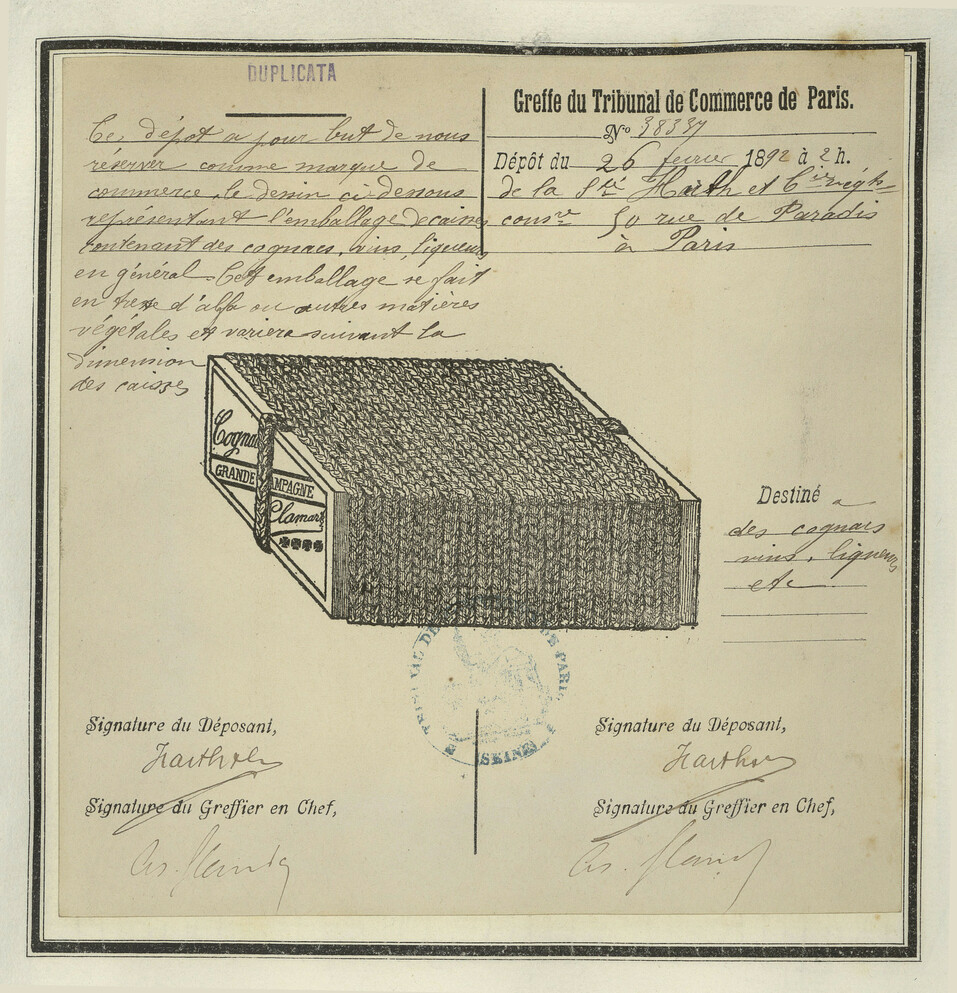 DUPLICATA
Ce dépot a pour but de nous
réserver comme marque de
commerce le dessin ci-dessous
représentant l'emballage de caisses
contenant des cognacs, vins, liqueurs
en général. Cet emballage se fait
en tresse d'alfa ou autres matières
végétales et variera suivant la
dimension
des caisses
Greffe du Tribunal de Commerce de Paris.
No 38337
Dépôt du 26 fevrier 1892 à 2 h.
de la Sté et Cie
50 rue de Paradis
à Paris
Cogna
GRANDE AMPAGNE
Clamart
Destiné a
des cognacs
vins, liqueurs
etc
DE PARIS
(SEINE)
Signature du Déposant,
Signature du Greffier en Chef,
Signature du Déposant,
Signature du Greffier en Chef,